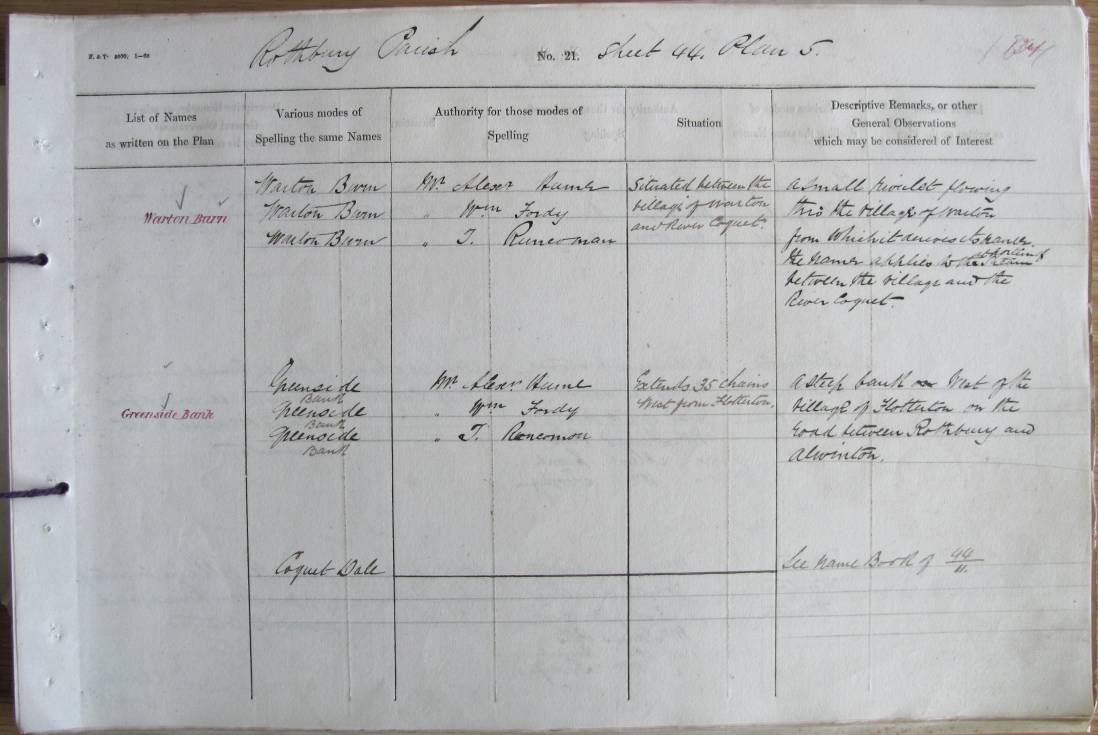 Rothbury Parish No. 21. Sheet 44. Plan 5.
List of Names
as written on the Plan
Various modes of
Spelling the same Names
Authority for those modes of
Spelling
Situation
Descriptive Remarks, or other
General Observations
which may be considered of Interest
Warton Burn
Warton Burn
Warton Burn
Warton Burn
Mr. Alexr Hume
" Wm Fordy
" T.
Situated between the
village of Warton
and River Coquet.
A small rivulet flowing
thro the village of Warton
from which it derives its name.
the name applies to the portion of
between the village and the
River Coquet.
Greenside Bank
Greenside
Bank
Greenside
Bank
Greenside
Bank
Mr. Alexr Hume
" Wm Fordy
" T.
Extends 35 chains
West from Flotterton.
A steep bank West of the
village of Flotterton on the
road between Rothbury and
Alwinton.
Coquet Dale
See Name Book of 44
11.